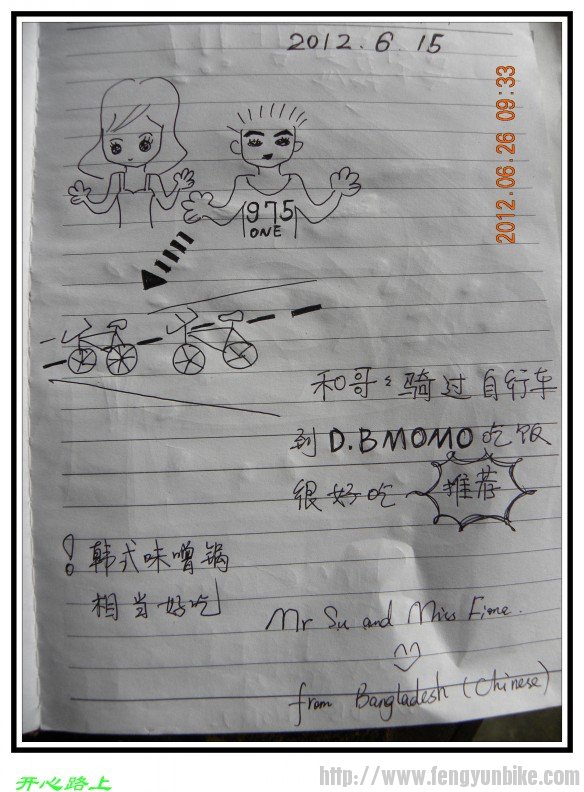 2012.6.15
2012.06.26 09:33
975
ONE
和哥哥骑过自行车
到D.BMOMO吃饭
很好吃 推荐
! 韩式味噌锅
相当好吃
Mr Su and Miss Fione.
from Bangladesh (Chinese)
开心路上
http://www.fengyunbike.com